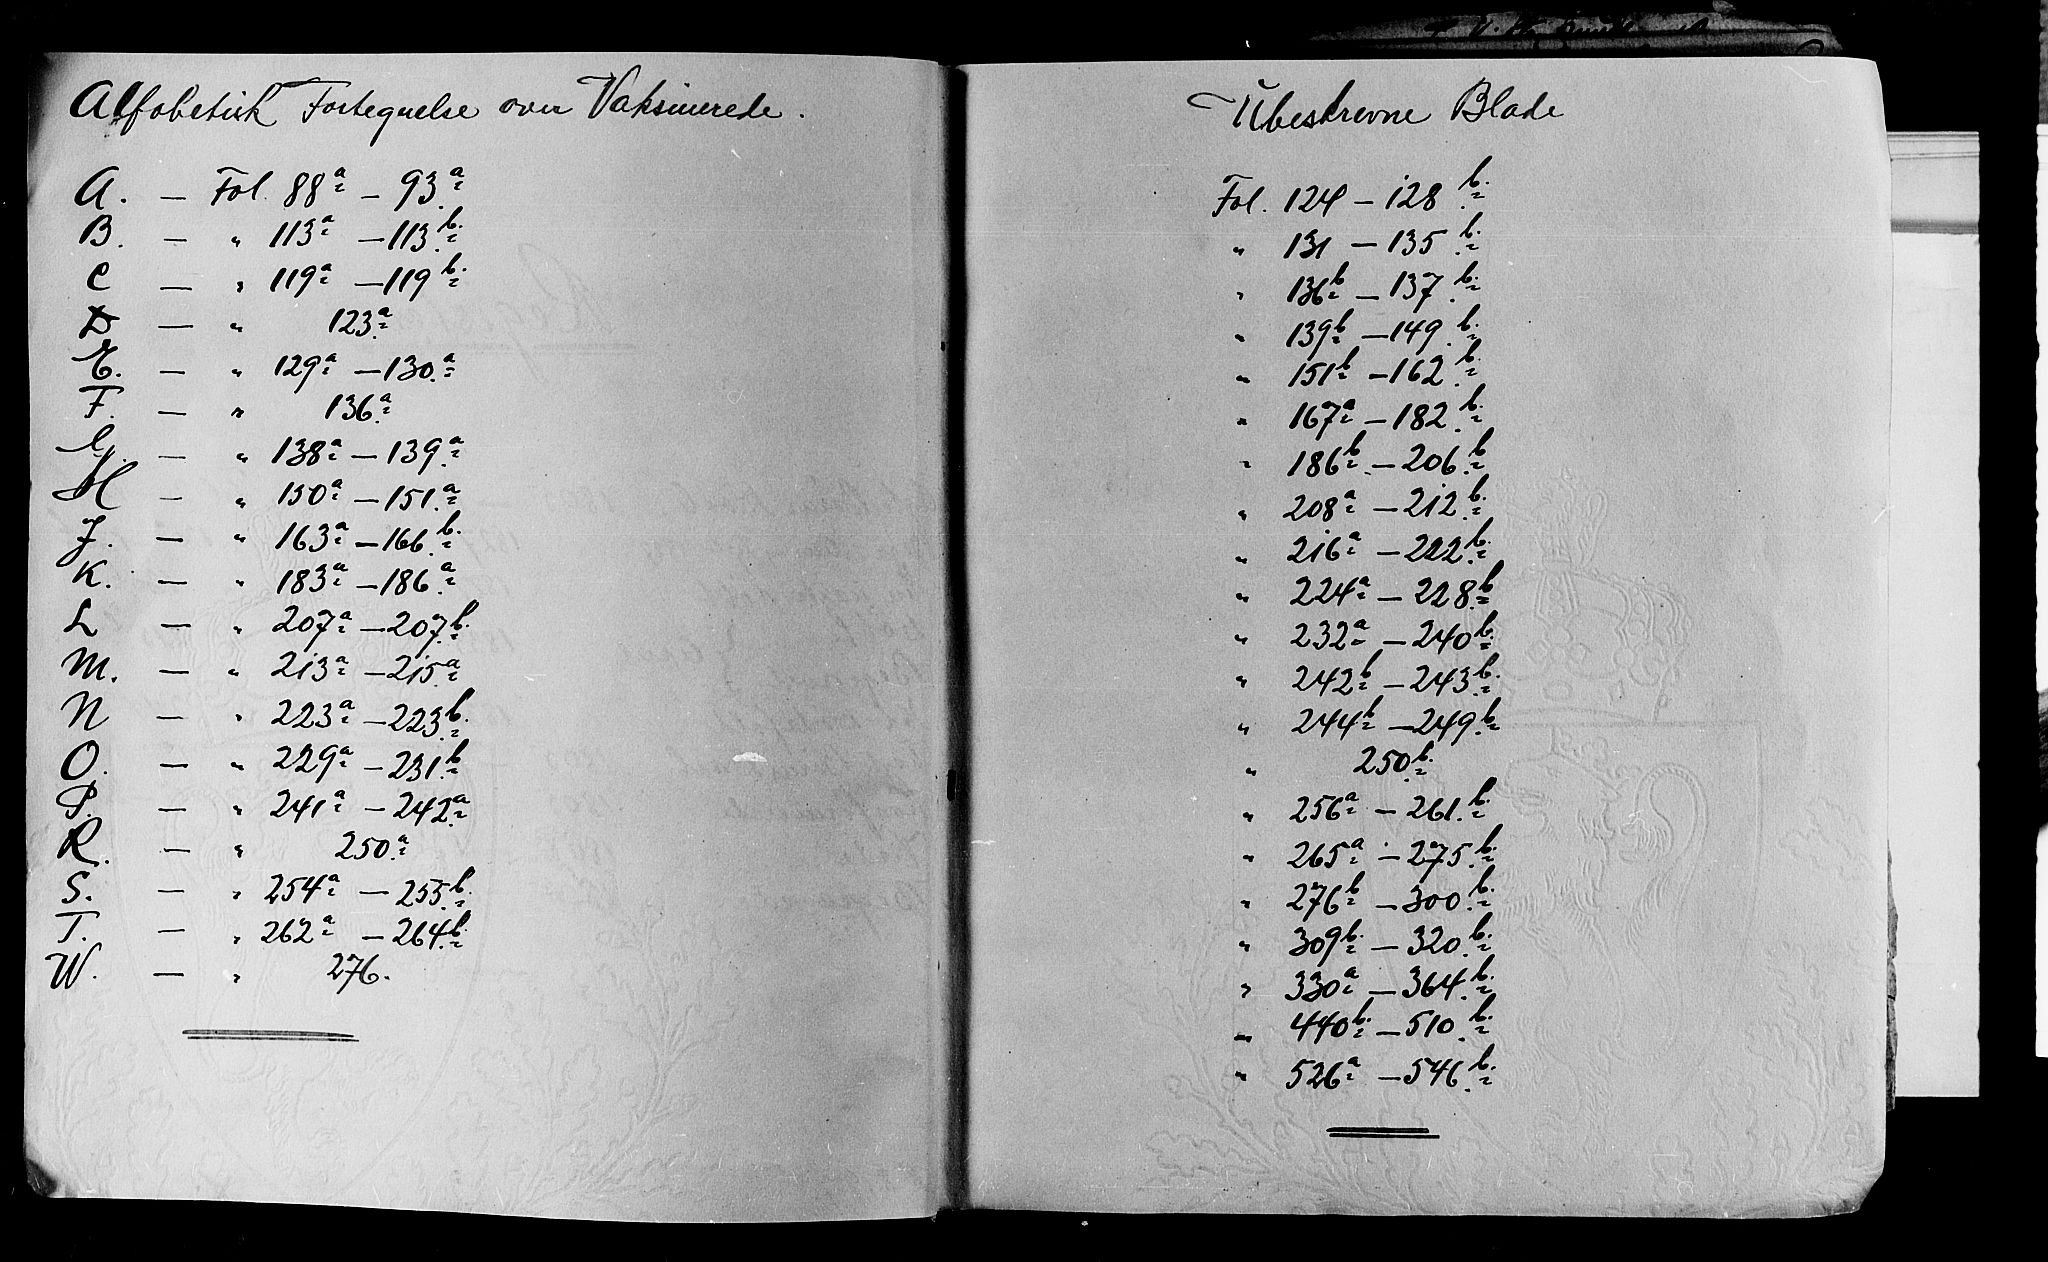 Alfabetisk Fortegnelse over Vaksinerede.
A. — Fol. 88a – 93a
B. — " 113a – 113b.
C — " 119a – 119b.
D — " 123a
E. — " 129a – 130a
F. — " 136a
G. — " 138a – 139a
H — " 150a – 151a
J. — " 163a – 166b.
K. — " 183a – 186a
L — " 207a – 207b.
M. — " 213a – 215a
N — " 223a – 223b.
O. — " 229a – 231b
P. — " 241a – 242a
R. — " 250a
S. — " 254a – 255b.
T. — " 262a – 264b.
W. — " 276.
Ubeskrevne Blade
Fol. 124 – 128b.
" 131 – 135b.
" 136b – 137b.
" 139b – 149b.
" 151b – 162b.
" 167a – 182b.
" 186b – 206b
" 208a – 212b.
" 216a – 222b.
" 224a – 228b
" 232a – 240b.
" 242b – 243b.
" 244b – 249b.
" 250b.
" 256a – 261b.
" 265a – 275b.
" 276b – 300b.
" 309b. – 320b.
" 330a – 364b.
" 440b. – 510b.
" 526a – 546b.